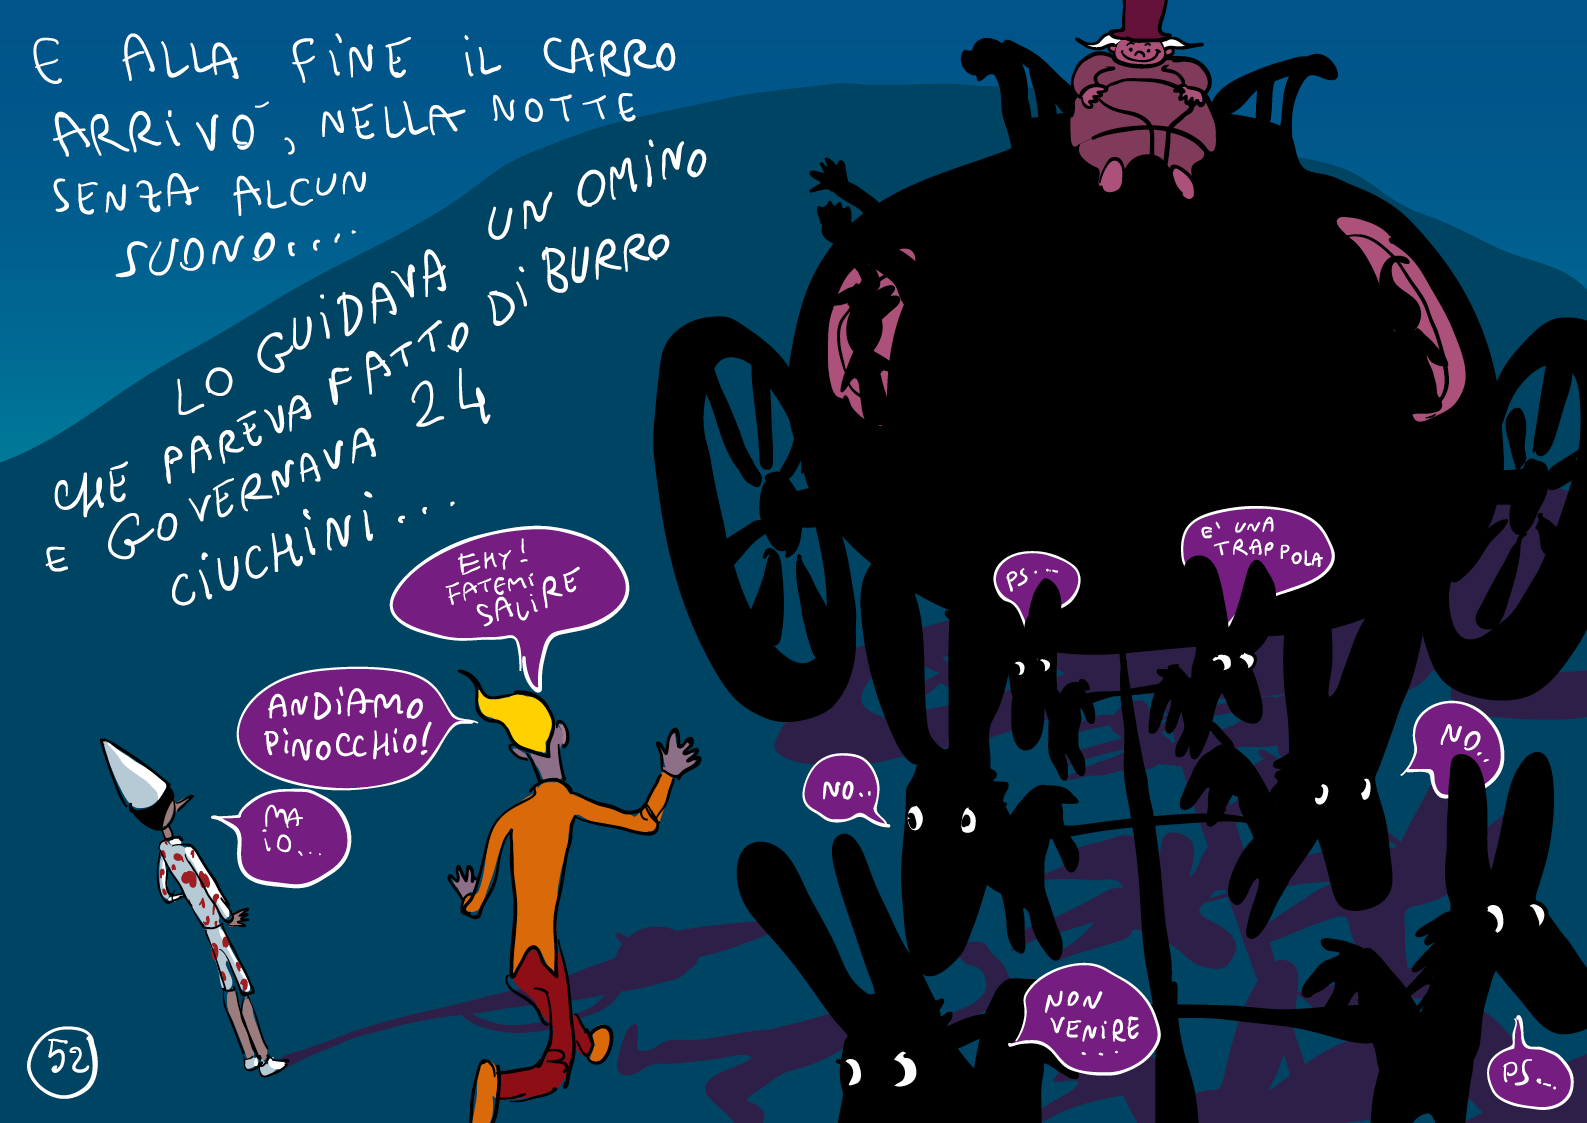 E ALLA FINE IL CARRO
ARRIVÒ, NELLA NOTTE
SENZA ALCUN
SUONO....
LO GUIDAVA UN OMINO
CHE PAREVA FATTO DI BURRO
E GOVERNAVA 24
CIUCHINI...
EHY!
FATEMI
SALIRE
ANDIAMO
PINOCCHIO!
MA
IO...
PS...
E' UNA
TRAPPOLA
NO..
NO..
NON
VENIRE
...
PS...
52